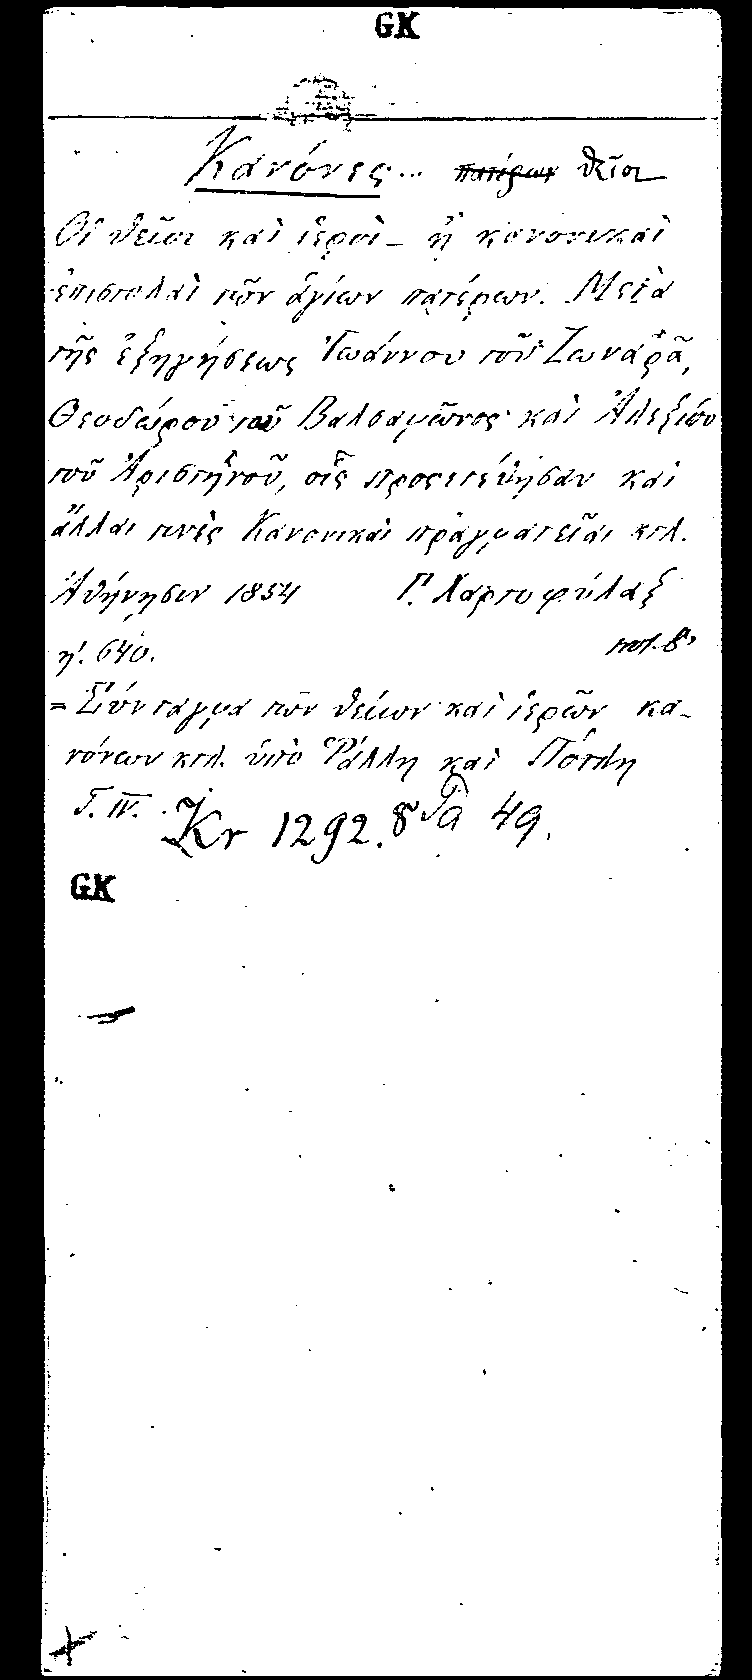 GK
Κανόνες... πατέρων θεῖοι
Οἱ θεῖοι καὶ ἱεροὶ – ἢ κανονικαὶ
ἐπιστολαὶ τῶν ἁγίων πατέρων. Μετὰ
τῆς ἐξηγήσεως Ἰωάννου τοῦ Ζωναρᾶ,
Θεοδώρου τοῦ Βαλσαμῶνος καὶ Ἀλεξίου
τοῦ Ἀριστηνοῦ, οἷς προσετέθησαν καὶ
ἄλλαι τινὲς Κανονικαὶ πραγματεῖαι κτλ.
Ἀθήνησιν 1854 Γ. Χαρτοφύλαξ
η'. 640.
= Σύνταγμα τῶν θείων καὶ ἱερῶν κα-
νόνων κτλ. ὑπὸ Ῥάλλη καὶ Πότλη
Τ. IV. Kr 1292. 8 49.
GK